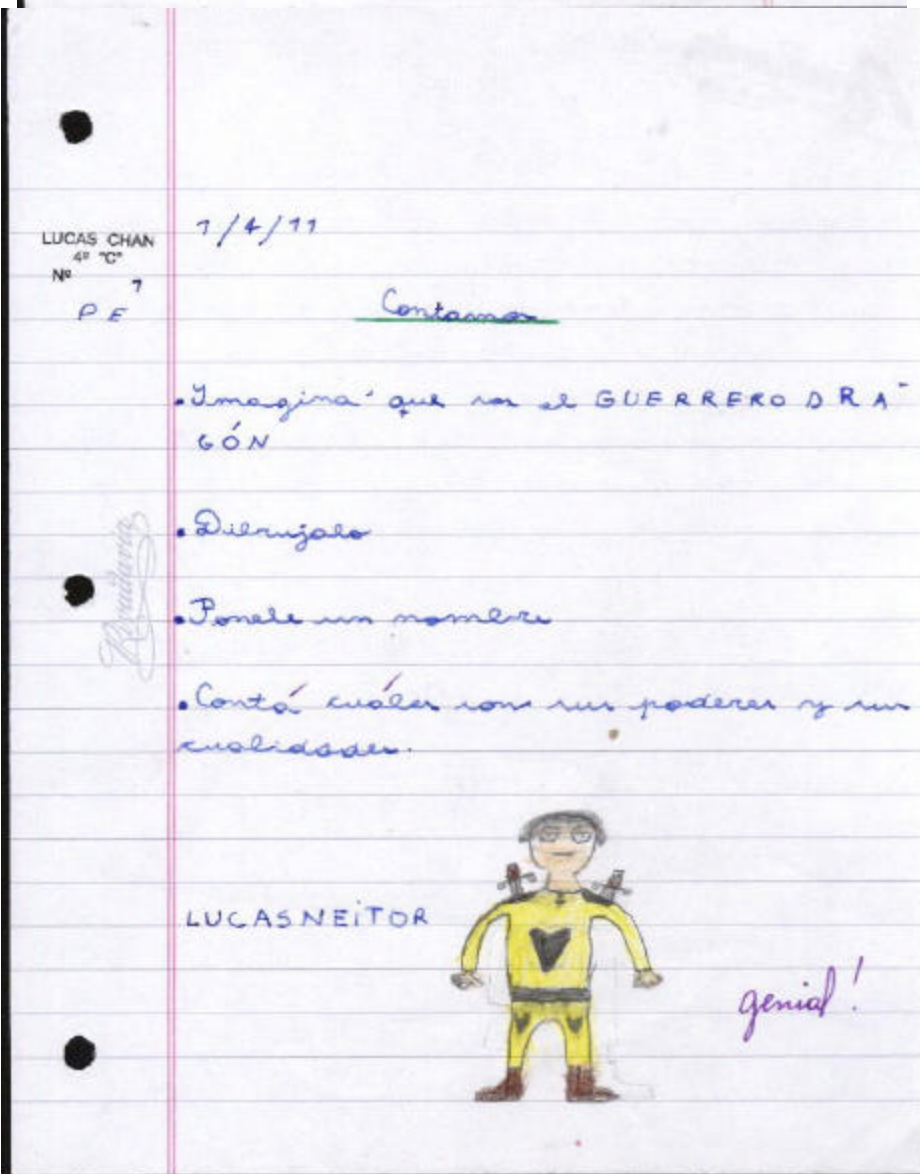 LUCAS CHAN
4º "C"
Nº 7
P E
7/4/11
Contamos
• Imaginá que sos el GUERRERO DRA-
GÓN
• Dibujalo
• Ponele un nombre
• Contá cuáles son sus poderes y sus
cualidades.
Rivadavia
LUCASNEITOR
genial!